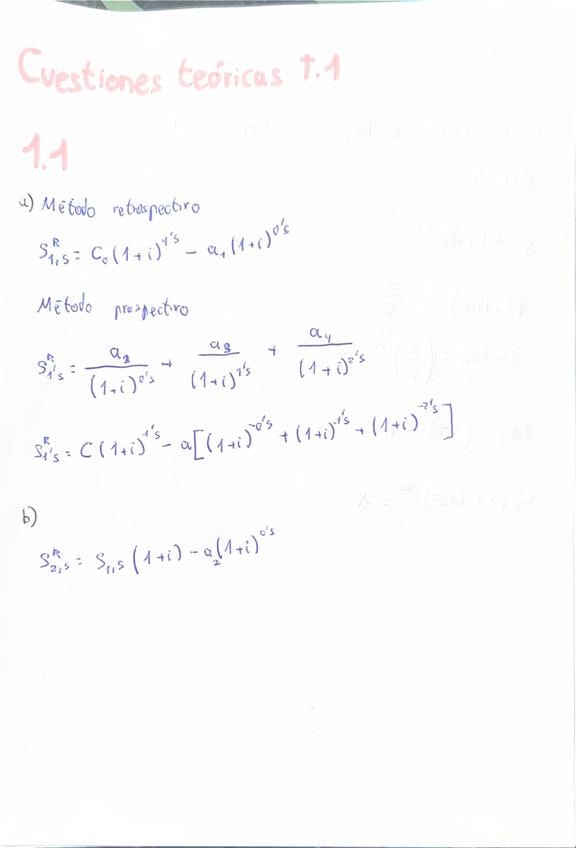 Cuestiones teóricas T.1
1.1
a) Método retrospectivo
S^R_{1,5} = C_0 (1+i)^{1'5} - a_1 (1+i)^{0'5}
Método prospectivo
S^R_{1'5} = a_2/(1+i)^{0'5} + a_3/(1+i)^{1'5} + a_4/(1+i)^{2'5}
S^R_{1'5} = C (1+i)^{1'5} - a [(1+i)^{-0'5} + (1+i)^{-1'5} + (1+i)^{-2'5}]
b)
S^R_{2,5} = S_{1,5} (1+i) - a_2 (1+i)^{0'5}